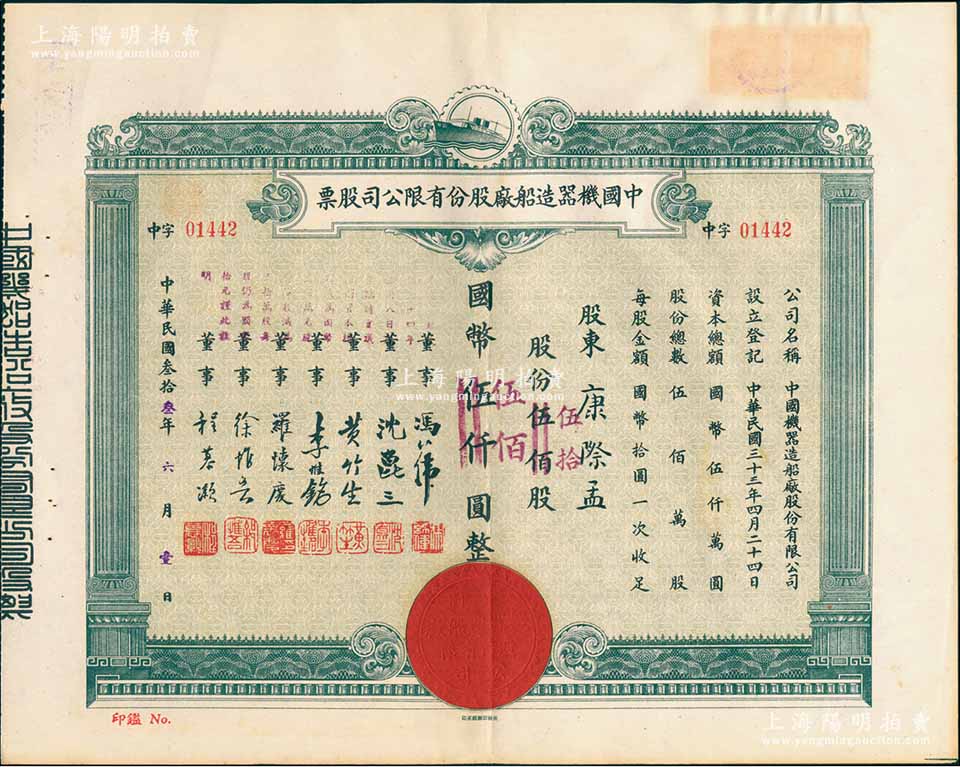 上海陽明拍賣
www.yangmingauction.com
票股司公限有份股廠船造器機國中
中字 01442
中字 01442
公司名稱 中國機器造船廠股份有限公司
設立登記 中華民國三十三年四月二十四日
資本總額 國幣伍仟萬圓
股份總數 伍佰萬股
每股金額 國幣拾圓一次收足
股東 康際孟
股份伍佰股
伍拾
國幣伍仟圓整
伍佰
董事 馮
董事 沈 三
董事 黃竹生
董事 李
董事 羅懷慶
董事 徐
董事 程慕灝
中華民國叁拾叁年六月壹日
上海陽明拍賣
www.yangmingauction.com
印鑑 No.
上海陽明拍賣
www.yangmingauction.com